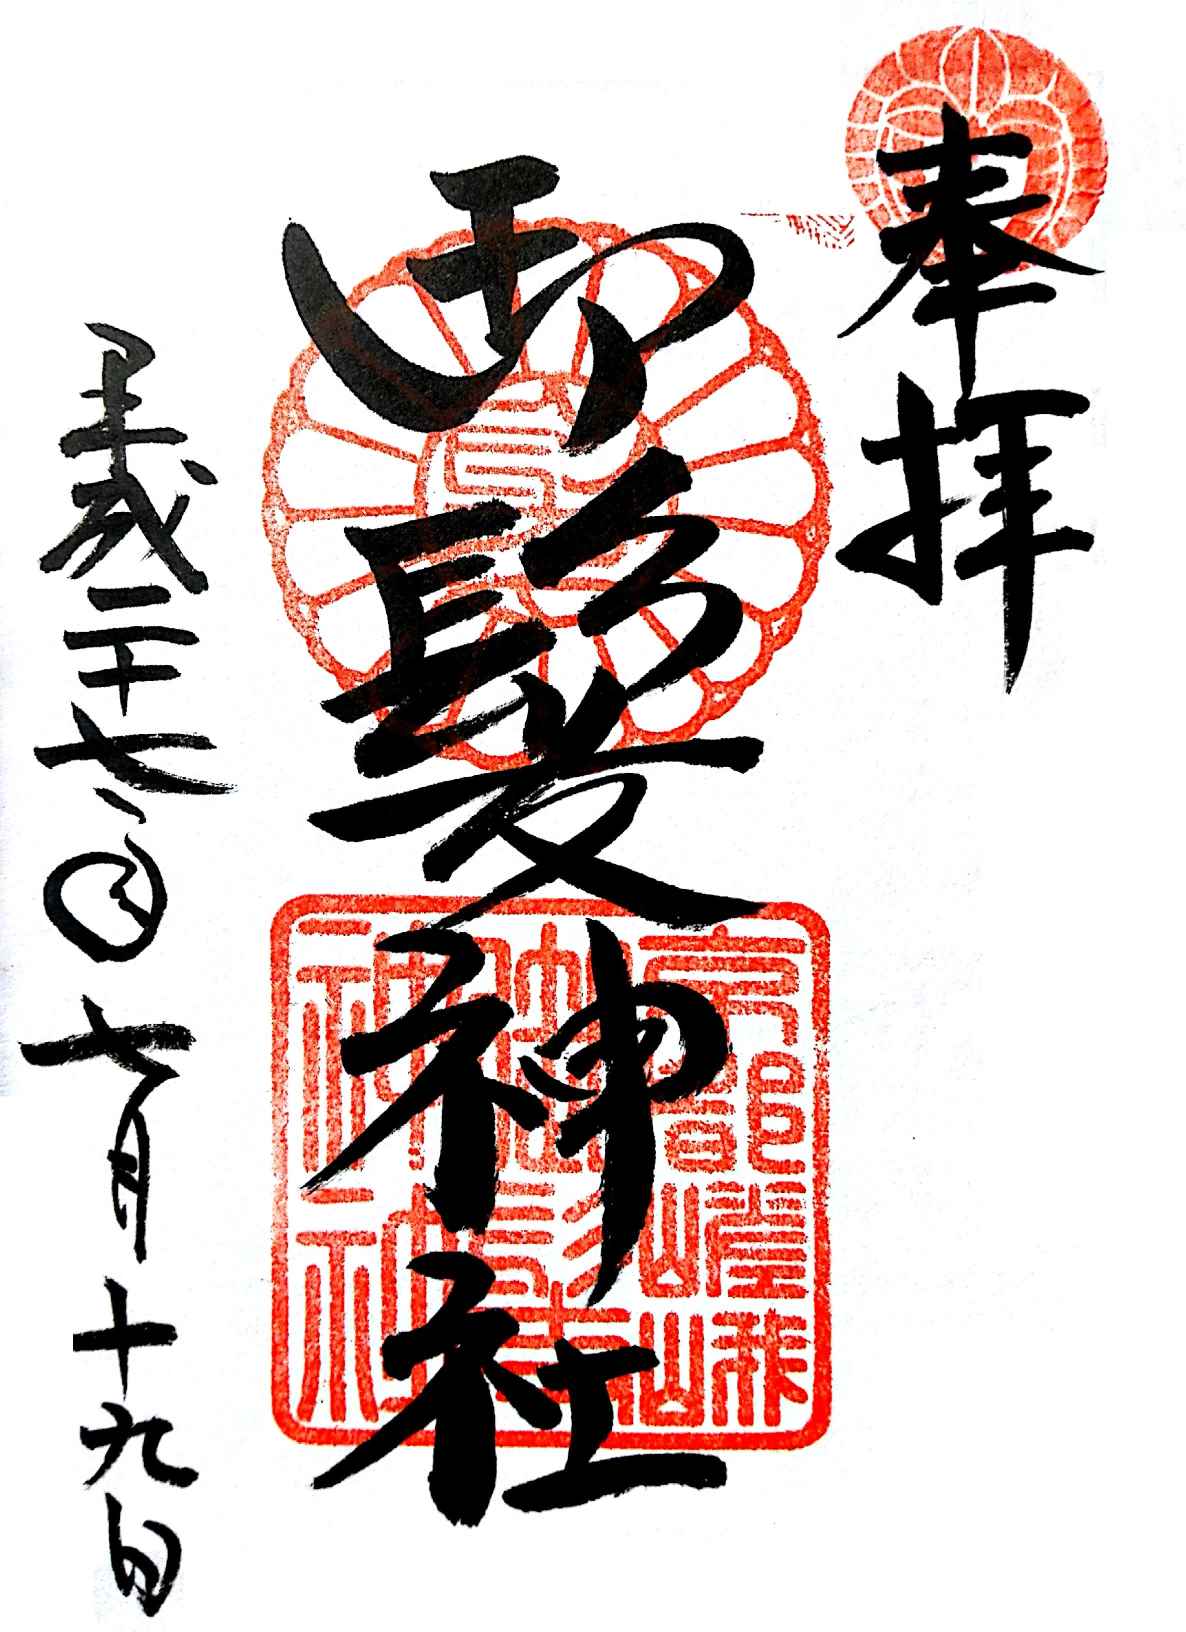 奉拝
御髪神社
京都嵯峨
御髪
神社
平成二十七年七月十九日